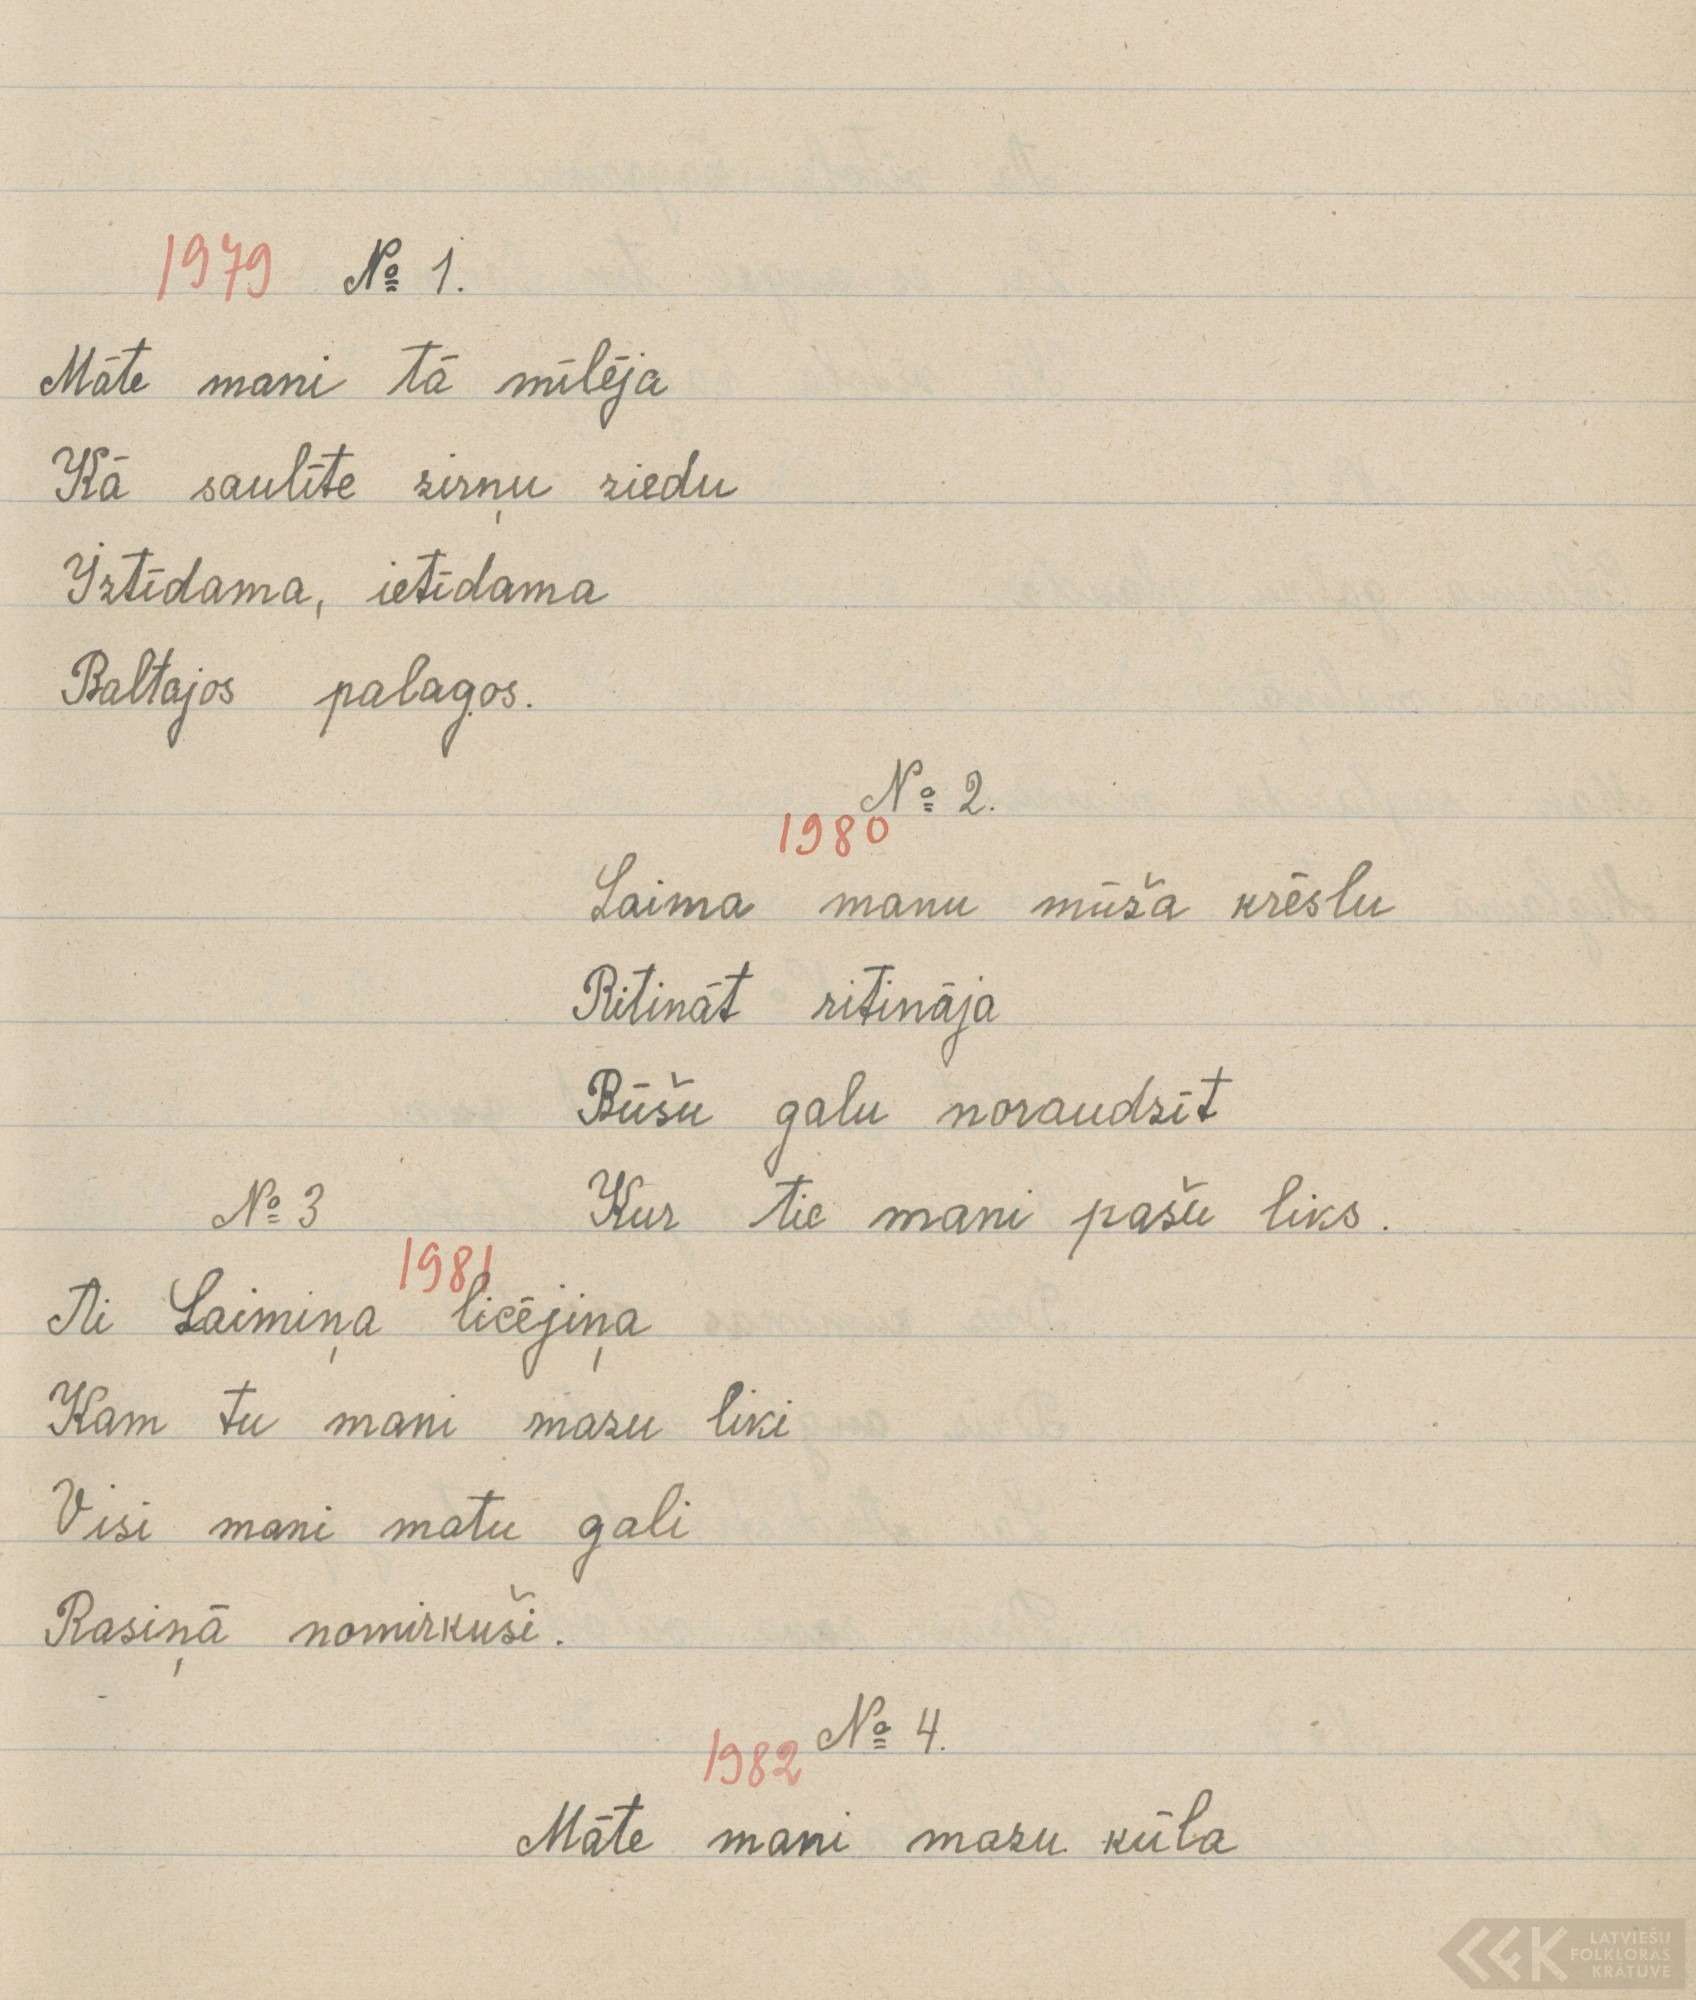 1979 № 1.
Māte mani tā mīlēja
Kā saulīte zirņu ziedu
Iztīdama, ietīdama
Baltajos palagos.
№ 2.
1980
Laima manu mūža krēslu
Ritināt ritināja
Būšu galu noraudzīt
Kur tie mani pašu liks.
№ 3
1981
Ai Laimiņa licējiņa
Kam tu mani mazu liki
Visi mani matu gali
Rasiņā nomirkuši.
№ 4.
1982
Māte mani mazu kūla
LATVIEŠU
FOLKLORAS
KRĀTUVE